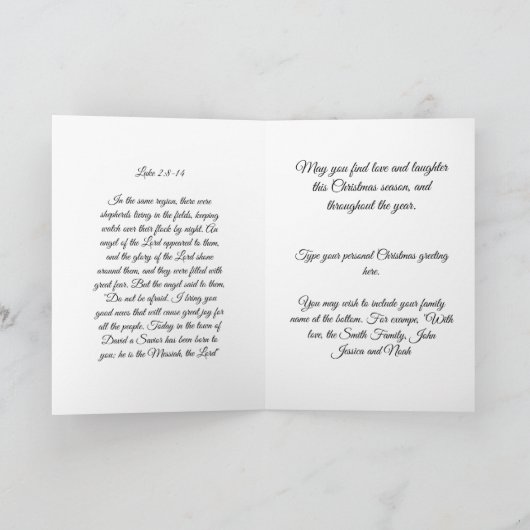 Luke 2:8-14
In the same region, there were
shepherds living in the fields, keeping
watch over their flock by night. An
angel of the Lord appeared to them,
and the glory of the Lord shone
around them, and they were filled with
great fear. But the angel said to them,
"Do not be afraid. I bring you
good news that will cause great joy for
all the people. Today in the town of
David a Savior has been born to
you; he is the Messiah, the Lord"
May you find love and laughter
this Christmas season, and
throughout the year.
Type your personal Christmas greeting
here.
You may wish to include your family
name at the bottom. For exampe, "With
love, the Smith Family, John
Jessica and Noah